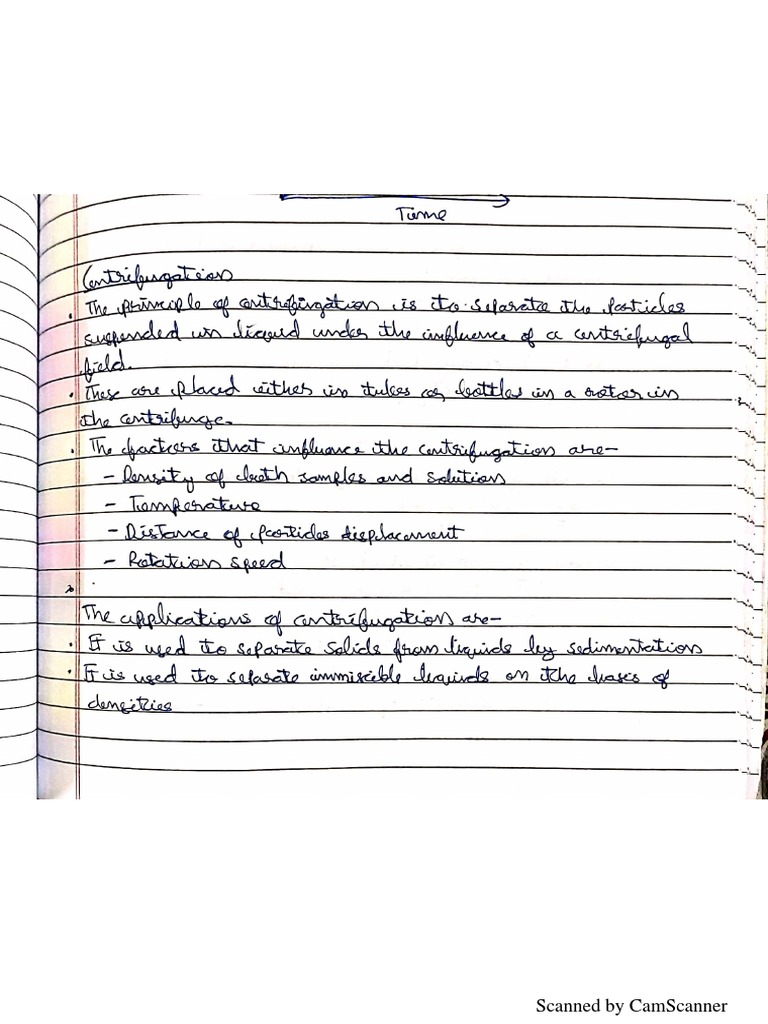 Time
Centrifugation
• The principle of centrifugation is to separate the particles
suspended in liquid under the influence of a centrifugal
field.
• These are placed either in tubes or bottles in a rotor in
the centrifuge.
• The factors that influence the centrifugation are-
- Density of both samples and solution
- Temperature
- Distance of particles displacement
- Rotation speed
The applications of centrifugation are-
• It is used to separate solids from liquids by sedimentation
• It is used to separate immiscible liquids on the bases of
densities
Scanned by CamScanner